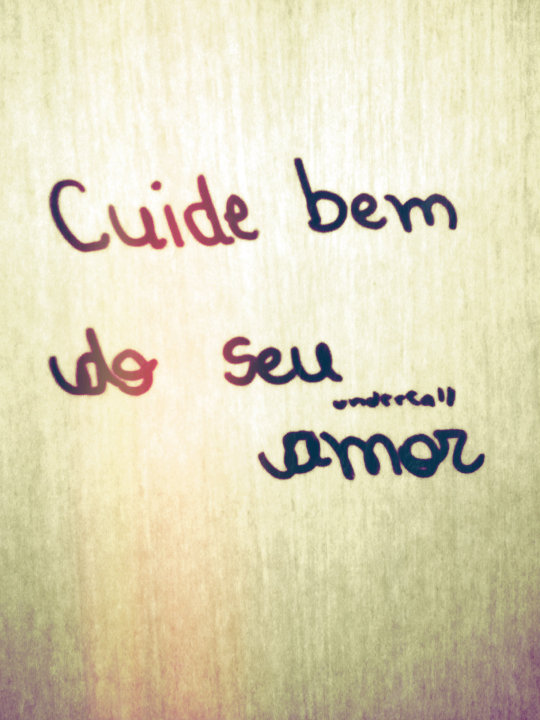 Cuide bem
do seu
undercall
amor